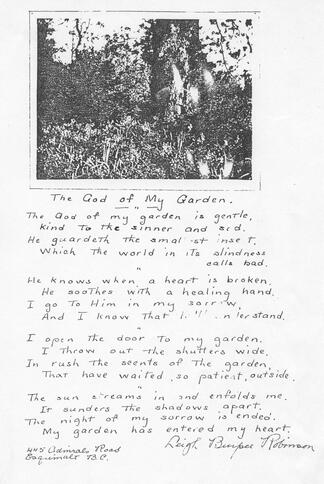 The God of My Garden.
The God of my garden is gentle,
kind to the sinner and sad.
He guardeth the smallest insect,
Which the world in its blindness
calls bad.
"
He knows when a heart is broken,
He soothes with a healing hand.
I go to Him in my sorrow,
And I know that understand.
"
I open the door to my garden.
I throw out the shutters wide,
In rush the scents of the garden,
That have waited so patient, outside.
"
The sun streams in and enfolds me.
It sunders the shadows apart.
The night of my sorrow is ended.
My garden has entered my heart.
Leigh Burpee Robinson
445 Admirals Road
Esquimalt B.C.